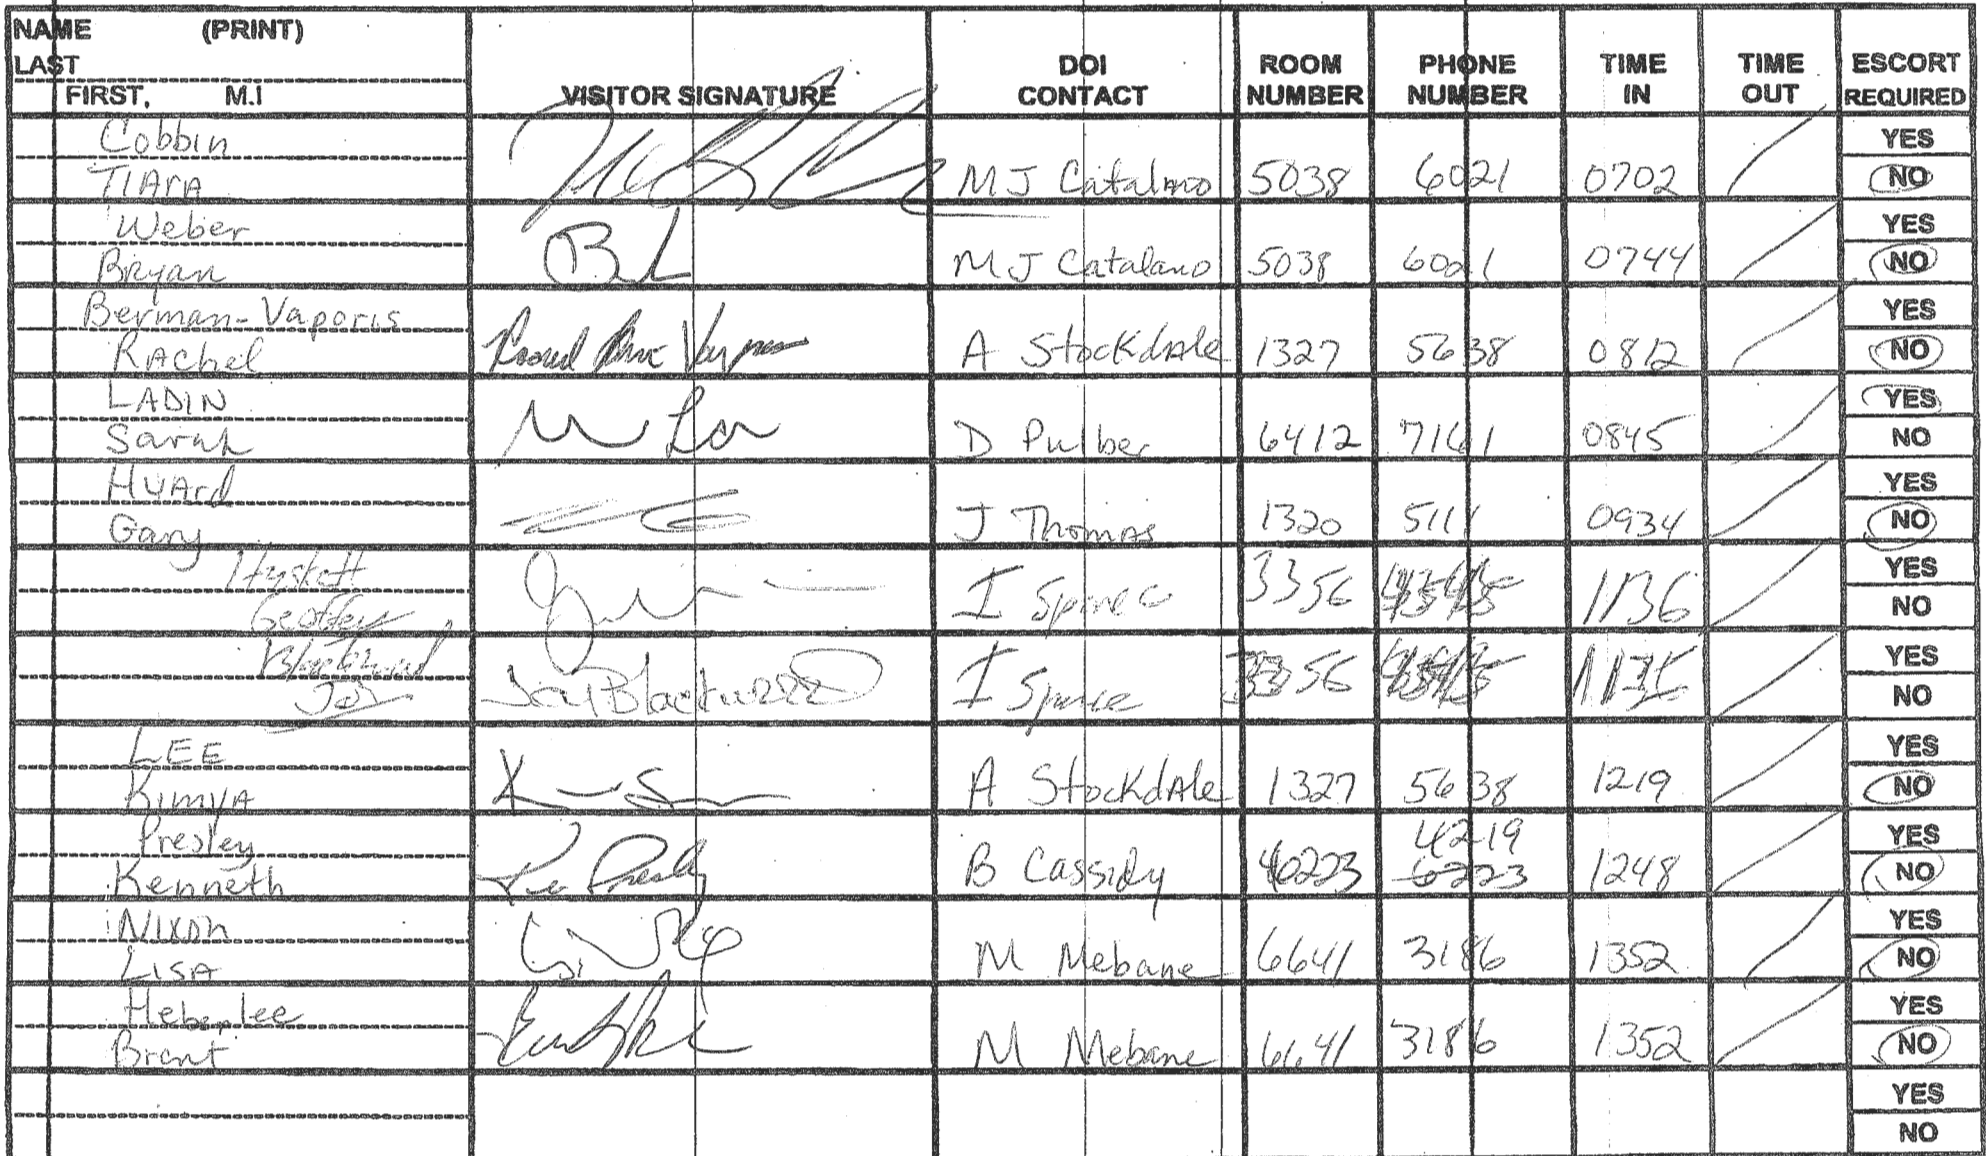 NAME (PRINT)
LAST
FIRST, M.I
VISITOR SIGNATURE
DOI CONTACT
ROOM NUMBER
PHONE NUMBER
TIME IN
TIME OUT
ESCORT REQUIRED
Cobbin
TIARA MJ Catalano 5038 6021 0702 YES NO
Weber
Bryan MJ Catalano 5038 6021 0744 YES NO
Berman-Vaporis
RAchel A StockdAle 1327 5638 0812 YES NO
LADIN
Sarah D Pulber 6412 7161 0845 YES NO
HUArd
Gary J ThomAs 1320 5111 0934 YES NO
Geoffrey I 3356 1136 YES NO
Joy Joy I 56 YES NO
LEE
KimyA A StockdAle 1327 5638 1219 YES NO
Presley 4219
Kenneth B Cassidy 6223 1248 YES NO
Nixon
LISA M Mebane 6641 3186 1352 YES NO
Heberlee
Brent M Mebane 6641 3186 1352 YES NO
YES
NO